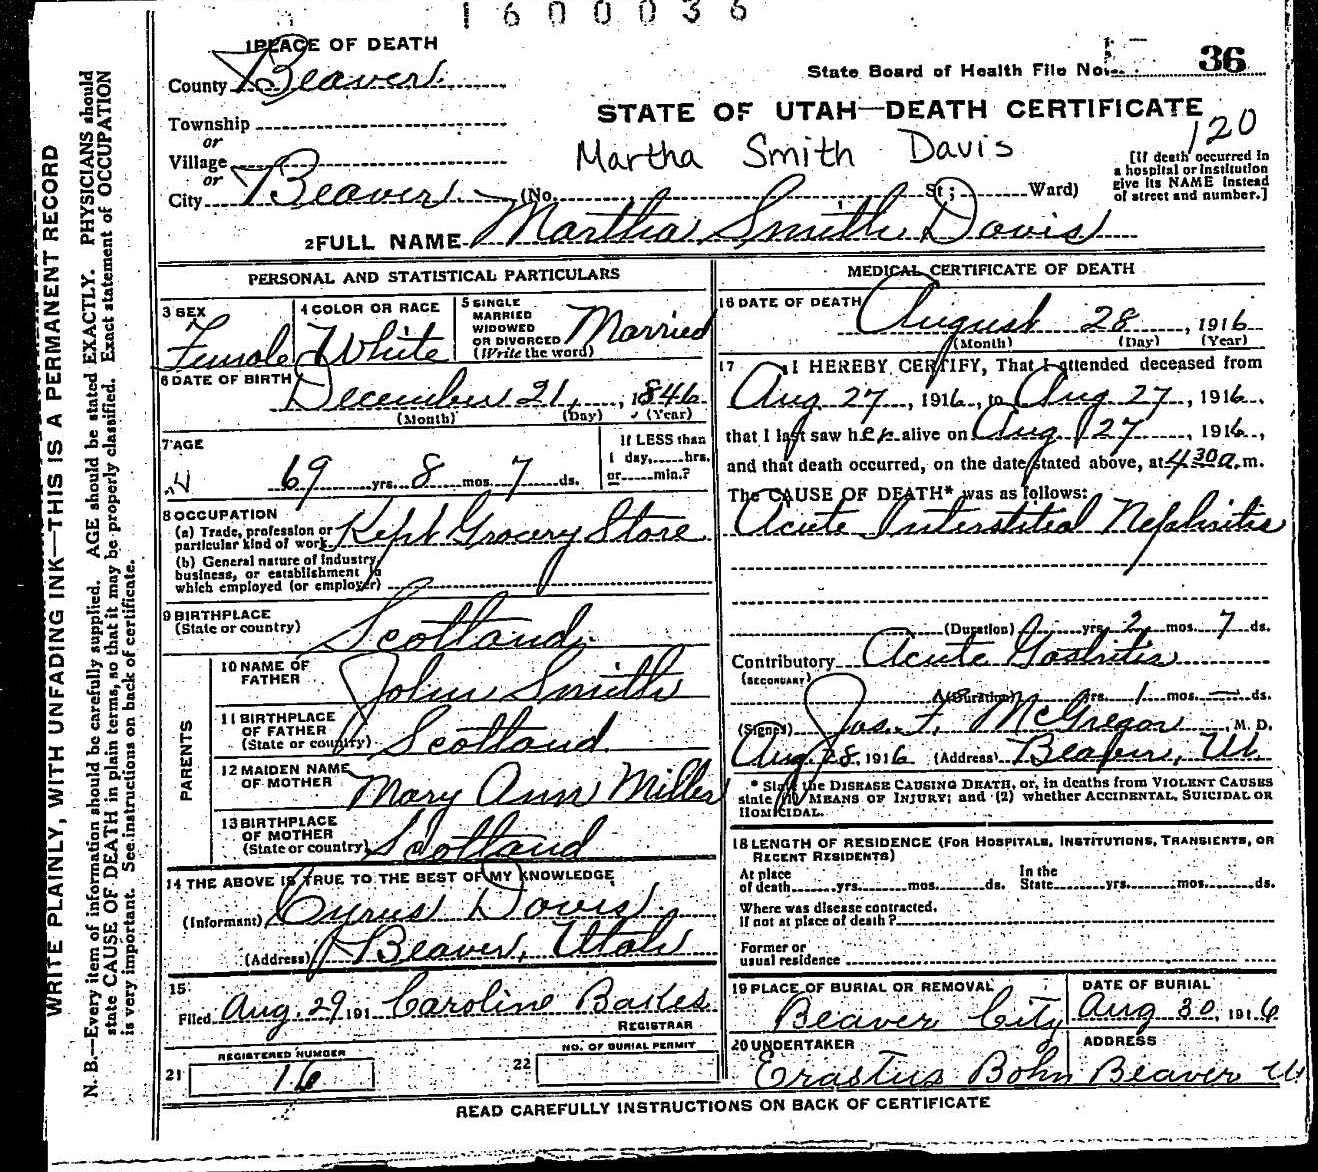 1600036
1 PLACE OF DEATH
County Beaver
State Board of Health File No. 36
STATE OF UTAH—DEATH CERTIFICATE
Township
or
Village
or
City Beaver (No. St; Ward)
Martha Smith Davis
120
[If death occurred in
a hospital or institution
give its NAME instead
of street and number.]
2 FULL NAME Martha Smith Davis
PERSONAL AND STATISTICAL PARTICULARS
3 SEX
Female
4 COLOR OR RACE
White
5 SINGLE
MARRIED
WIDOWED
OR DIVORCED
(Write the word)
Married
6 DATE OF BIRTH
December 21, 1846
(Month) (Day) (Year)
7 AGE
69 yrs. 8 mos. 7 ds.
If LESS than
1 day, hrs.
or min.?
8 OCCUPATION
(a) Trade, profession or
particular kind of work Kept Grocery Store
(b) General nature of industry,
business, or establishment in
which employed (or employer)
9 BIRTHPLACE
(State or country)
Scotland
PARENTS
10 NAME OF
FATHER
John Smith
11 BIRTHPLACE
OF FATHER
(State or country) Scotland
12 MAIDEN NAME
OF MOTHER
Mary Ann Miller
13 BIRTHPLACE
OF MOTHER
(State or country) Scotland
14 THE ABOVE IS TRUE TO THE BEST OF MY KNOWLEDGE
(Informant) Cyrus Davis
(Address) Beaver, Utah
15
Filed Aug. 29, 191 Caroline
REGISTRAR
REGISTERED NUMBER
21 16
NO. OF BURIAL PERMIT
22
MEDICAL CERTIFICATE OF DEATH
16 DATE OF DEATH
August 28, 1916
(Month) (Day) (Year)
17 I HEREBY CERTIFY, That I attended deceased from
Aug 27, 1916, to Aug 27, 1916,
that I last saw her alive on Aug 27, 1916,
and that death occurred, on the date stated above, at 4 30 a.m.
The CAUSE OF DEATH* was as follows:
Acute Interstitial Nephritis
(Duration) yrs. 2 mos. 7 ds.
Contributory Acute Gastritis
(SECONDARY)
(Duration) yrs. 1 mos. — ds.
(Signed) Jas. F. McGregor, M. D.
Aug 28, 1916 (Address) Beaver, Ut.
* State the DISEASE CAUSING DEATH, or, in deaths from VIOLENT CAUSES
state (1) MEANS OF INJURY; and (2) whether ACCIDENTAL, SUICIDAL OR
HOMICIDAL.
18 LENGTH OF RESIDENCE (FOR HOSPITALS, INSTITUTIONS, TRANSIENTS, OR
RECENT RESIDENTS)
At place
of death yrs. mos. ds.
In the
State yrs. mos. ds.
Where was disease contracted.
If not at place of death?
Former or
usual residence
19 PLACE OF BURIAL OR REMOVAL
Beaver City
DATE OF BURIAL
Aug 30, 1916
20 UNDERTAKER
Erastus Bohn
ADDRESS
Beaver U
READ CAREFULLY INSTRUCTIONS ON BACK OF CERTIFICATE
WRITE PLAINLY, WITH UNFADING INK—THIS IS A PERMANENT RECORD
N. B.—Every item of information should be carefully supplied. AGE should be stated EXACTLY. PHYSICIANS should
state CAUSE OF DEATH in plain terms, so that it may be properly classified. Exact statement of OCCUPATION
is very important. See instructions on back of certificate.